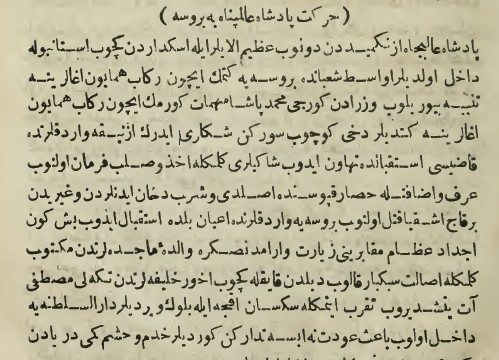 ( حركت پادشاه عالمپناه به بروسه )
پادشاه عاليجاه ازنكميددن دونوب عظيم الايلر ايله اسكداردن كچوب استانبوله
داخل اولديلر اواسط شعبانده بروسه يه كتمك ايچون ركاب همايون اغازينه
تنبيه بيوريلوب وزرادن كورجى محمد پاشا مهمات كورمك ايچون ركاب همايون
اغازينه كتديلر دخى كوچوب سوركن شكارى ايدرك ازنيقه واردقلرنده
قاضيسى استقبالده تهاون ايدوب شاكيلرى كلمكله اخذ وصلب فرمان اولنوب
عرف واضافتله حصار قپوسنده اصلدى وشرب دخان ايدنلردن وغيريدن
برقاج اشقيا قتل اولنوب بروسه يه واردقلرنده اعيان بلده استقبال ايدوب بش كون
اجداد عظام مقابرينى زيارت وارامدنصكره والدۀ ماجده لرندن مكتوب
كلمكله اصالت سبكبار قالوب ديلدن قايقله كچوب اخور خليفه لرندن تكه لى مصطفى
آت يتشديروب تقرب ايتمكله سكسان اقچه ايله بلوك ويرديلر دار السلطنه يه
داخل اولوب باعث عودت نه ايسه تداركن كورديلر خدم وحشم كمى دريادن